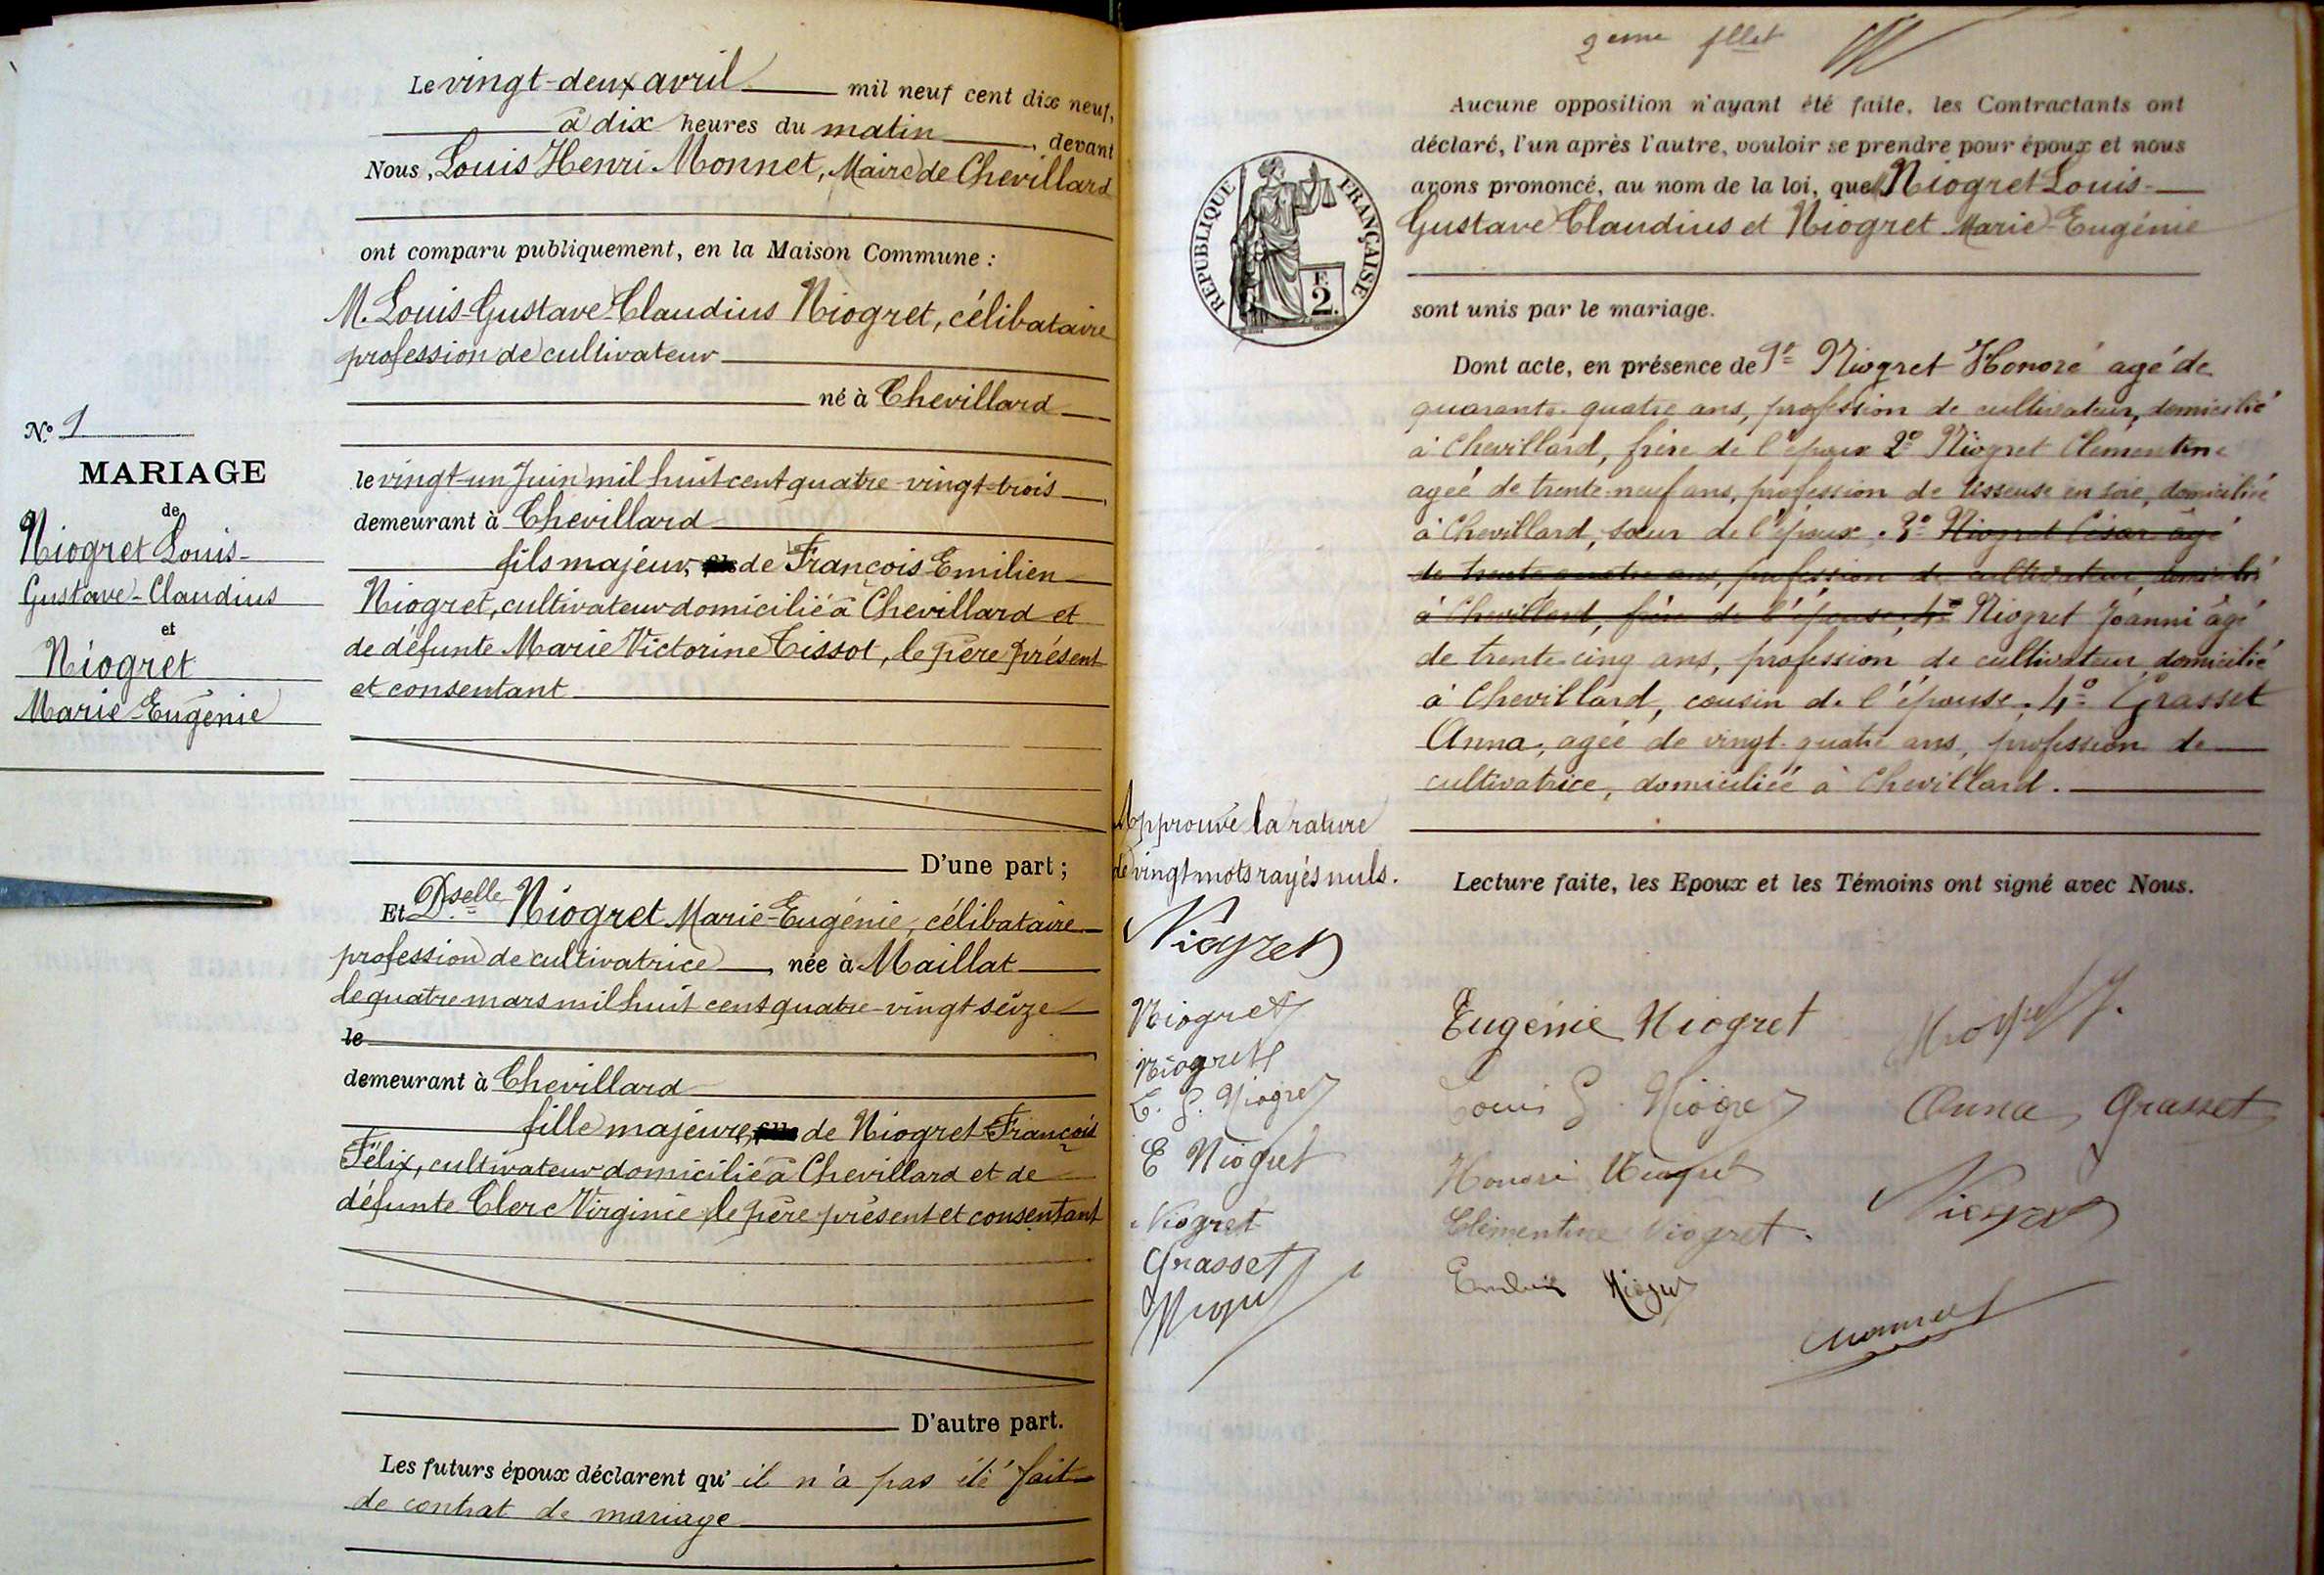 Le vingt-deux avril mil neuf cent dix neuf,
à dix heures du matin, devant
Nous, Louis Henri Monnet, Maire de Chevillard
ont comparu publiquement, en la Maison Commune :
M. Louis-Gustave-Claudius Niogret, célibataire
profession de cultivateur
né à Chevillard
le vingt-un Juin mil huit cent quatre-vingt-trois,
demeurant à Chevillard
fils majeur, de François Emilien
Niogret, cultivateur domicilié à Chevillard et
de défunte Marie Victorine Tissot, le père présent
et consentant
D'une part ;
Et Dselle Niogret Marie-Eugénie, célibataire
profession de cultivatrice, née à Maillat
le quatre mars mil huit cent quatre-vingt seize
le
demeurant à Chevillard
fille majeure, de Niogret François
Félix, cultivateur domicilié à Chevillard et de
défunte Clerc Virginie, le père présent et consentant
D'autre part.
Les futurs époux déclarent qu' il n'a pas été fait
de contrat de mariage
N° 1
MARIAGE
de
Niogret Louis-
Gustave-Claudius
et
Niogret
Marie-Eugénie
2eme fllet
Aucune opposition n'ayant été faite, les Contractants ont
déclaré, l'un après l'autre, vouloir se prendre pour époux et nous
avons prononcé, au nom de la loi, que Niogret Louis-
Gustave Claudius et Niogret Marie-Eugénie
sont unis par le mariage.
RÉPUBLIQUE FRANÇAISE
F.
2.
Dont acte, en présence de 1° Niogret Honoré agé de
quarante-quatre ans, profession de cultivateur, domicilié
à Chevillard, frère de l'époux 2° Niogret Clementine
agée de trente-neuf ans, profession de tisseuse en soie, domiciliée
à Chevillard, sœur de l'époux. 3° Niogret César âgé
de trente quatre ans, profession de cultivateur, domicilié
à Chevillard, frère de l'épouse, 4° Niogret Joanni âgé
de trente-cinq ans, profession de cultivateur domicilié
à Chevillard, cousin de l'épouse. 4° Grasset
Anna, agée de vingt-quatre ans, profession de
cultivatrice, domiciliée à Chevillard.
Approuvé la rature
de vingt mots rayés nuls.
Lecture faite, les Epoux et les Témoins ont signé avec Nous.
Niogret
Niogret
Niogret
L. G. Niogret
E Niogret
Niogret
Grasset
Niogret
Eugénie Niogret
Niogret J.
Louis G. Niogret
Anna Grasset
Honoré Niogret
Niogret
Clémentine Niogret.
Niogret
Monnet